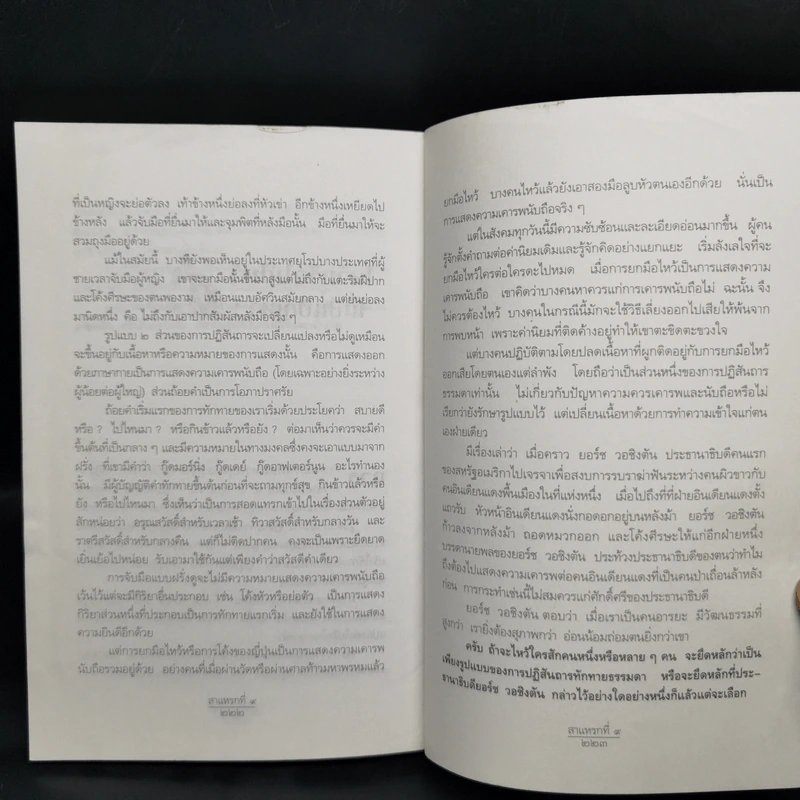 ที่เป็นหญิงจะย่อตัวลง เท้าข้างหนึ่งย่อลงที่หัวเข่า อีกข้างหนึ่งเหยียดไป
ข้างหลัง แล้วจับมือที่ยื่นมาให้และจุมพิตที่หลังมือนั้น มือที่ยื่นมาให้จะ
สวมถุงมืออยู่ด้วย
แม้ในสมัยนี้ บางทียังพอเห็นอยู่ในประเทศยุโรปบางประเทศที่ผู้
ชายเวลาจับมือผู้หญิง เขาจะยกมือนั้นขึ้นมาสูงแต่ไม่ถึงกับแตะริมฝีปาก
และโค้งศีรษะของตนพองาม เหมือนแบบอัศวินสมัยกลาง แต่ย่นย่อลง
มานิดหนึ่ง คือ ไม่ถึงกับเอาปากสัมผัสหลังมือจริง ๆ
รูปแบบ ๒ ส่วนของการปฏิสันถารจะเปลี่ยนแปลงหรือไม่ดูเหมือน
จะขึ้นอยู่กับเนื้อหาหรือความหมายของการแสดงนั้น คือการแสดงออก
ด้วยภาษากายเป็นการแสดงความเคารพนับถือ (โดยเฉพาะอย่างยิ่งระหว่าง
ผู้น้อยต่อผู้ใหญ่) ส่วนถ้อยคำเป็นการโอภาปราศรัย
ถ้อยคำเริ่มแรกของการทักทายของเราเริ่มด้วยประโยคว่า สบายดี
หรือ ? ไปไหนมา ? หรือกินข้าวแล้วหรือยัง ? ต่อมาเห็นว่าควรจะมีคำ
ขึ้นต้นที่เป็นกลาง ๆ และมีความหมายในทางมงคลซึ่งคงจะเอาแบบมาจาก
ฝรั่ง ที่เขามีคำว่า กู๊ดมอร์นิง กู๊ดเดย์ กู๊ดอาฟเตอร์นูน อะไรทำนอง
นั้น มีผู้บัญญัติคำทักทายขึ้นต้นก่อนที่จะถามทุกข์สุข กินข้าวแล้วหรือ
ยัง หรือไปไหนมา ซึ่งเห็นว่าเป็นการสอดแทรกเข้าไปในเรื่องส่วนตัวอยู่
สักหน่อยว่า อรุณสวัสดิ์สำหรับเวลาเช้า ทิวาสวัสดิ์สำหรับกลางวัน และ
ราตรีสวัสดิ์สำหรับกลางคืน แต่ก็ไม่ติดปากคน คงจะเป็นเพราะยืดยาด
เยิ่นเย้อไปหน่อย รับเอามาใช้กันแต่เพียงคำว่าสวัสดีคำเดียว
การจับมือแบบฝรั่งดูจะไม่มีความหมายแสดงความเคารพนับถือ
เว้นไว้แต่จะมีกิริยาอื่นประกอบ เช่น โค้งหัวหรือย่อตัว เป็นการแสดง
กิริยาส่วนหนึ่งที่ประกอบเป็นการทักทายแรกเริ่ม และยังใช้ในการแสดง
ความยินดีอีกด้วย
แต่การยกมือไหว้หรือการโค้งของญี่ปุ่นเป็นการแสดงความเคารพ
นับถือรวมอยู่ด้วย อย่างคนที่เมื่อผ่านวัดหรือผ่านศาลท้าวมหาพรหมแล้ว
สาแหรกที่ ๙
๒๒๒
ยกมือไหว้ บางคนไหว้แล้วยังเอาสองมือลูบหัวตนเองอีกด้วย นั่นเป็น
การแสดงความเคารพนับถือจริง ๆ
แต่ในสังคมทุกวันนี้มีความซับซ้อนและละเอียดอ่อนมากขึ้น ผู้คน
รู้จักตั้งคำถามต่อค่านิยมเดิมและรู้จักคิดอย่างแยกแยะ เริ่มลังเลใจที่จะ
ยกมือไหว้ใครต่อใครดะไปหมด เมื่อการยกมือไหว้เป็นการแสดงความ
เคารพนับถือ เขาคิดว่าบางคนหาควรแก่การเคารพนับถือไม่ ฉะนั้น จึง
ไม่ควรต้องไหว้ บางคนในกรณีนี้มักจะใช้วิธีเลี่ยงออกไปเสียให้พ้นจาก
การพบหน้า เพราะค่านิยมที่ติดค้างอยู่ทำให้เขาตะขิดตะขวงใจ
แต่บางคนปฏิบัติตามโดยปลดเนื้อหาที่ผูกติดอยู่กับการยกมือไหว้
ออกเสียโดยตนเองแต่ลำพัง โดยถือว่าเป็นส่วนหนึ่งของการปฏิสันถาร
ธรรมดาเท่านั้น ไม่เกี่ยวกับปัญหาความควรเคารพและนับถือหรือไม่
เรียกว่ายังรักษารูปแบบไว้ แต่เปลี่ยนเนื้อหาด้วยการทำความเข้าใจแก่ตน
เองฝ่ายเดียว
มีเรื่องเล่าว่า เมื่อคราว ยอร์ช วอชิงตัน ประธานาธิบดีคนแรก
ของสหรัฐอเมริกาไปเจรจาเพื่อสงบการรบราฆ่าฟันระหว่างคนผิวขาวกับ
คนอินเดียนแดงพื้นเมืองในที่แห่งหนึ่ง เมื่อไปถึงที่ที่ฝ่ายอินเดียนแดงตั้ง
แถวรับ หัวหน้าอินเดียนแดงนั่งกอดอกอยู่บนหลังม้า ยอร์ช วอชิงตัน
ก้าวลงจากหลังม้า ถอดหมวกออก และโค้งศีรษะให้แก่อีกฝ่ายหนึ่ง
บรรดานายพลของยอร์ช วอชิงตัน ประท้วงประธานาธิบดีของตนว่าทำไม
ถึงต้องไปแสดงความเคารพต่อคนอินเดียนแดงที่เป็นคนป่าเถื่อนล้าหลัง
ก่อน การกระทำเช่นนี้ไม่สมควรแก่ศักดิ์ศรีของประธานาธิบดี
ยอร์ช วอชิงตัน ตอบว่า เมื่อเราเป็นคนอารยะ มีวัฒนธรรมที่
สูงกว่า เรายิ่งต้องสุภาพกว่า อ่อนน้อมถ่อมตนยิ่งกว่าเขา
ครับ ถ้าจะไหว้ใครสักคนหนึ่งหรือหลาย ๆ คน จะยึดหลักว่าเป็น
เพียงรูปแบบของการปฏิสันถารทักทายธรรมดา หรือจะยึดหลักที่ประ-
ธานาธิบดียอร์ช วอชิงตัน กล่าวไว้อย่างใดอย่างหนึ่งก็แล้วแต่จะเลือก
สาแหรกที่ ๙
๒๒๓